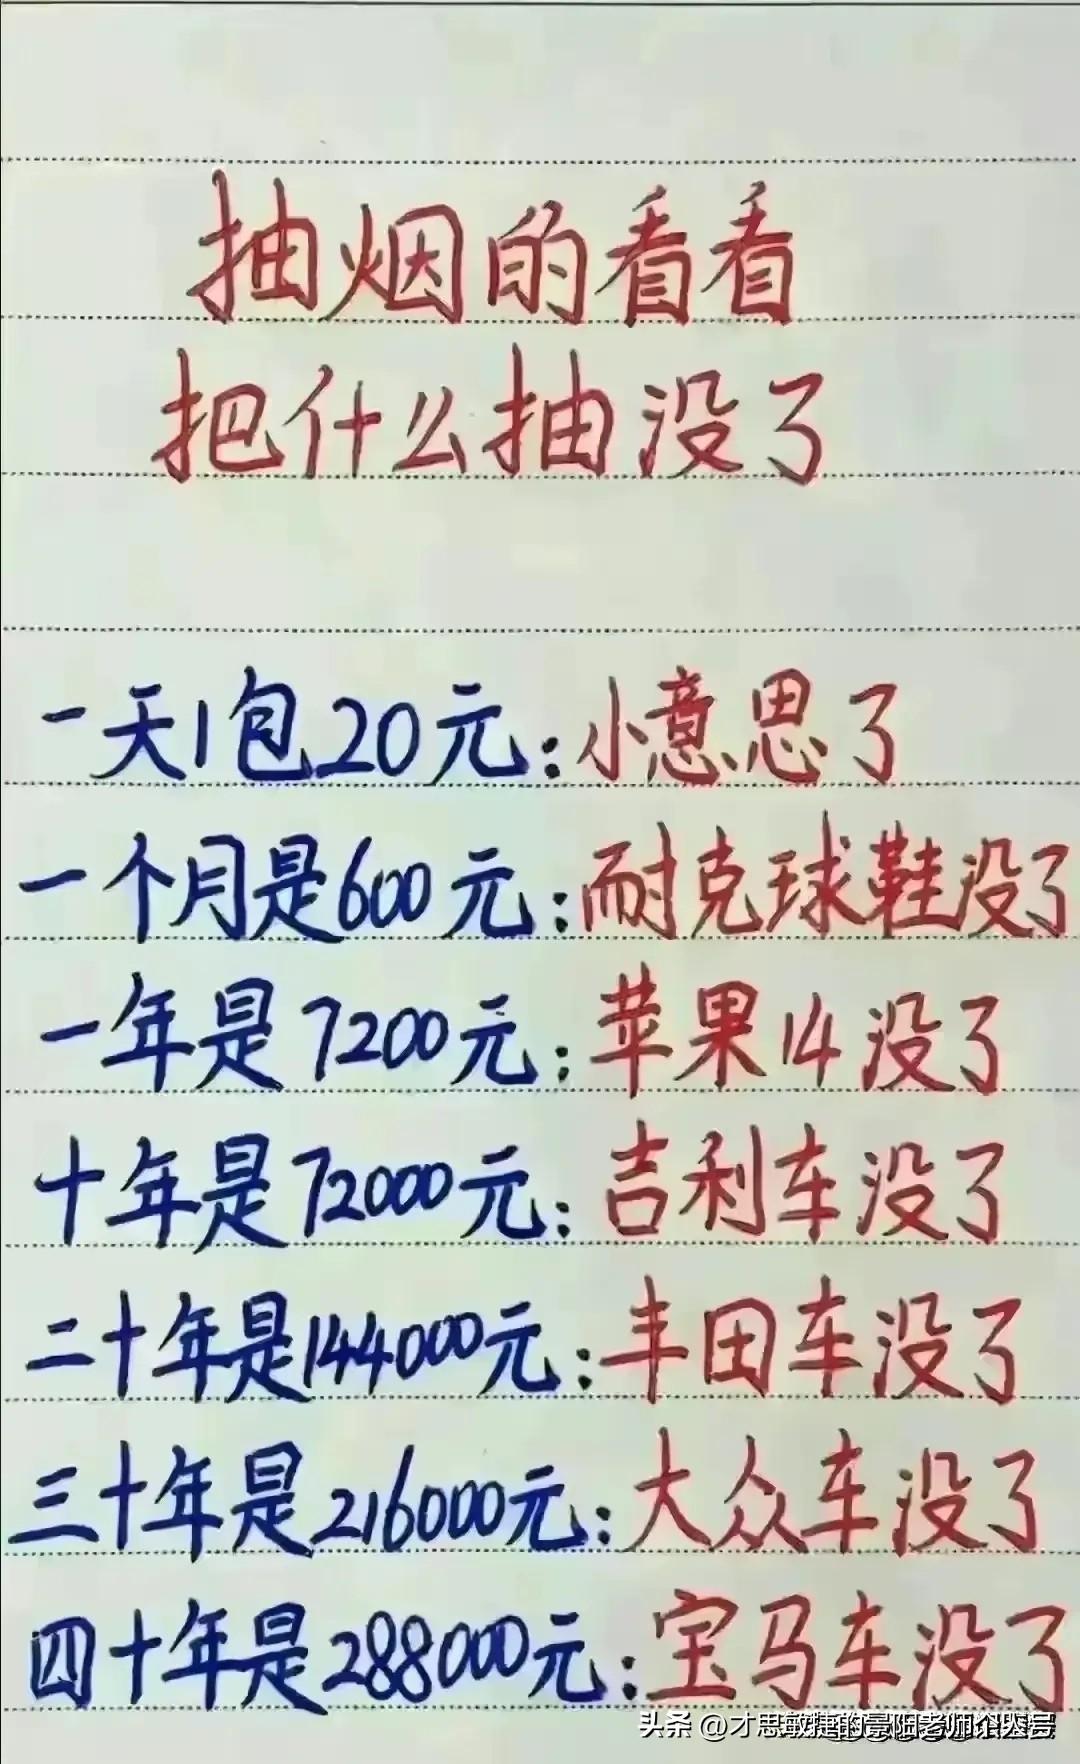 抽烟的看看
把什么抽没了
一天1包20元:小意思了
一个月是600元:耐克球鞋没了
一年是7200元:苹果14没了
十年是72000元:吉利车没了
二十年是144000元:丰田车没了
三十年是216000元:大众车没了
四十年是288000元:宝马车没了
头条 @才思敏捷的景阳老师